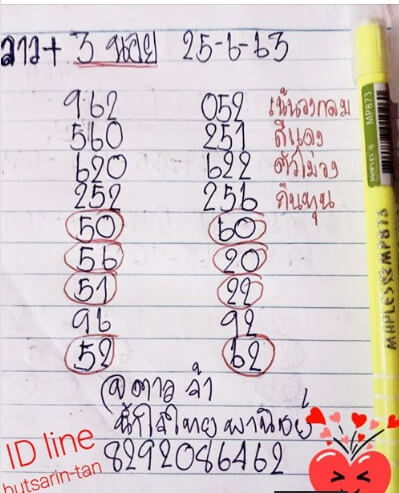 ลาว + 3 หอย 25-6-63
962 052 เน้นวงกลม
560 251 สีแดง
620 622 ตัวไม่วง
252 256 คืนทุน
50 60
56 20
51 22
96 92
52 62
8292086462
ID line
butsarin-tan
MP873
MAPLES MP873